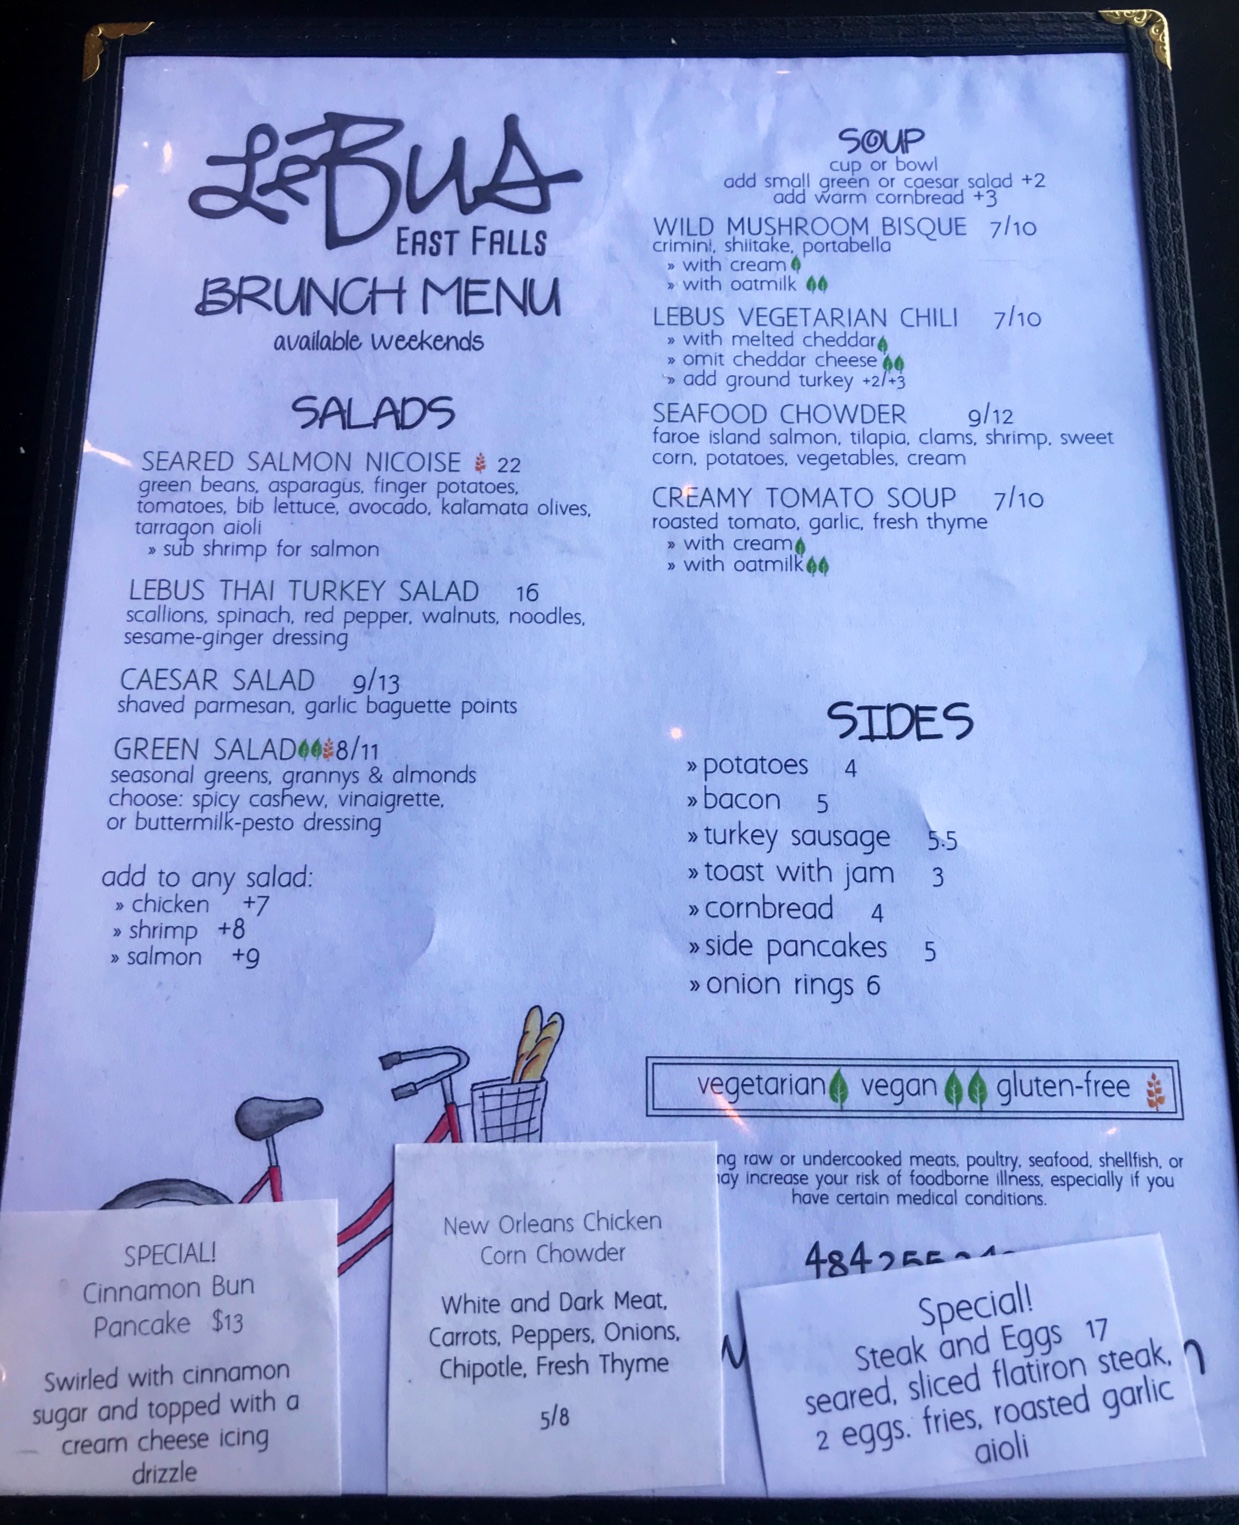 LeBus
EAST FALLS
BRUNCH MENU
available weekends
SALADS
SEARED SALMON NICOISE 22
green beans, asparagus, finger potatoes,
tomatoes, bib lettuce, avocado, kalamata olives,
tarragon aioli
» sub shrimp for salmon
LEBUS THAI TURKEY SALAD 16
scallions, spinach, red pepper, walnuts, noodles,
sesame-ginger dressing
CAESAR SALAD 9/13
shaved parmesan, garlic baguette points
GREEN SALAD 8/11
seasonal greens, grannys & almonds
choose: spicy cashew, vinaigrette,
or buttermilk-pesto dressing
add to any salad:
» chicken +7
» shrimp +8
» salmon +9
SOUP
cup or bowl
add small green or caesar salad +2
add warm cornbread +3
WILD MUSHROOM BISQUE 7/10
crimini, shiitake, portabella
» with cream
» with oatmilk
LEBUS VEGETARIAN CHILI 7/10
» with melted cheddar
» omit cheddar cheese
» add ground turkey +2/+3
SEAFOOD CHOWDER 9/12
faroe island salmon, tilapia, clams, shrimp, sweet
corn, potatoes, vegetables, cream
CREAMY TOMATO SOUP 7/10
roasted tomato, garlic, fresh thyme
» with cream
» with oatmilk
SIDES
» potatoes 4
» bacon 5
» turkey sausage 5.5
» toast with jam 3
» cornbread 4
» side pancakes 5
» onion rings 6
vegetarian vegan gluten-free
raw or undercooked meats, poultry, seafood, shellfish, or
increase your risk of foodborne illness, especially if you
have certain medical conditions.
484 255
SPECIAL!
Cinnamon Bun
Pancake $13
Swirled with cinnamon
sugar and topped with a
cream cheese icing
drizzle
New Orleans Chicken
Corn Chowder
White and Dark Meat,
Carrots, Peppers, Onions,
Chipotle, Fresh Thyme
5/8
Special!
Steak and Eggs 17
seared, sliced flatiron steak,
2 eggs. fries, roasted garlic
aioli